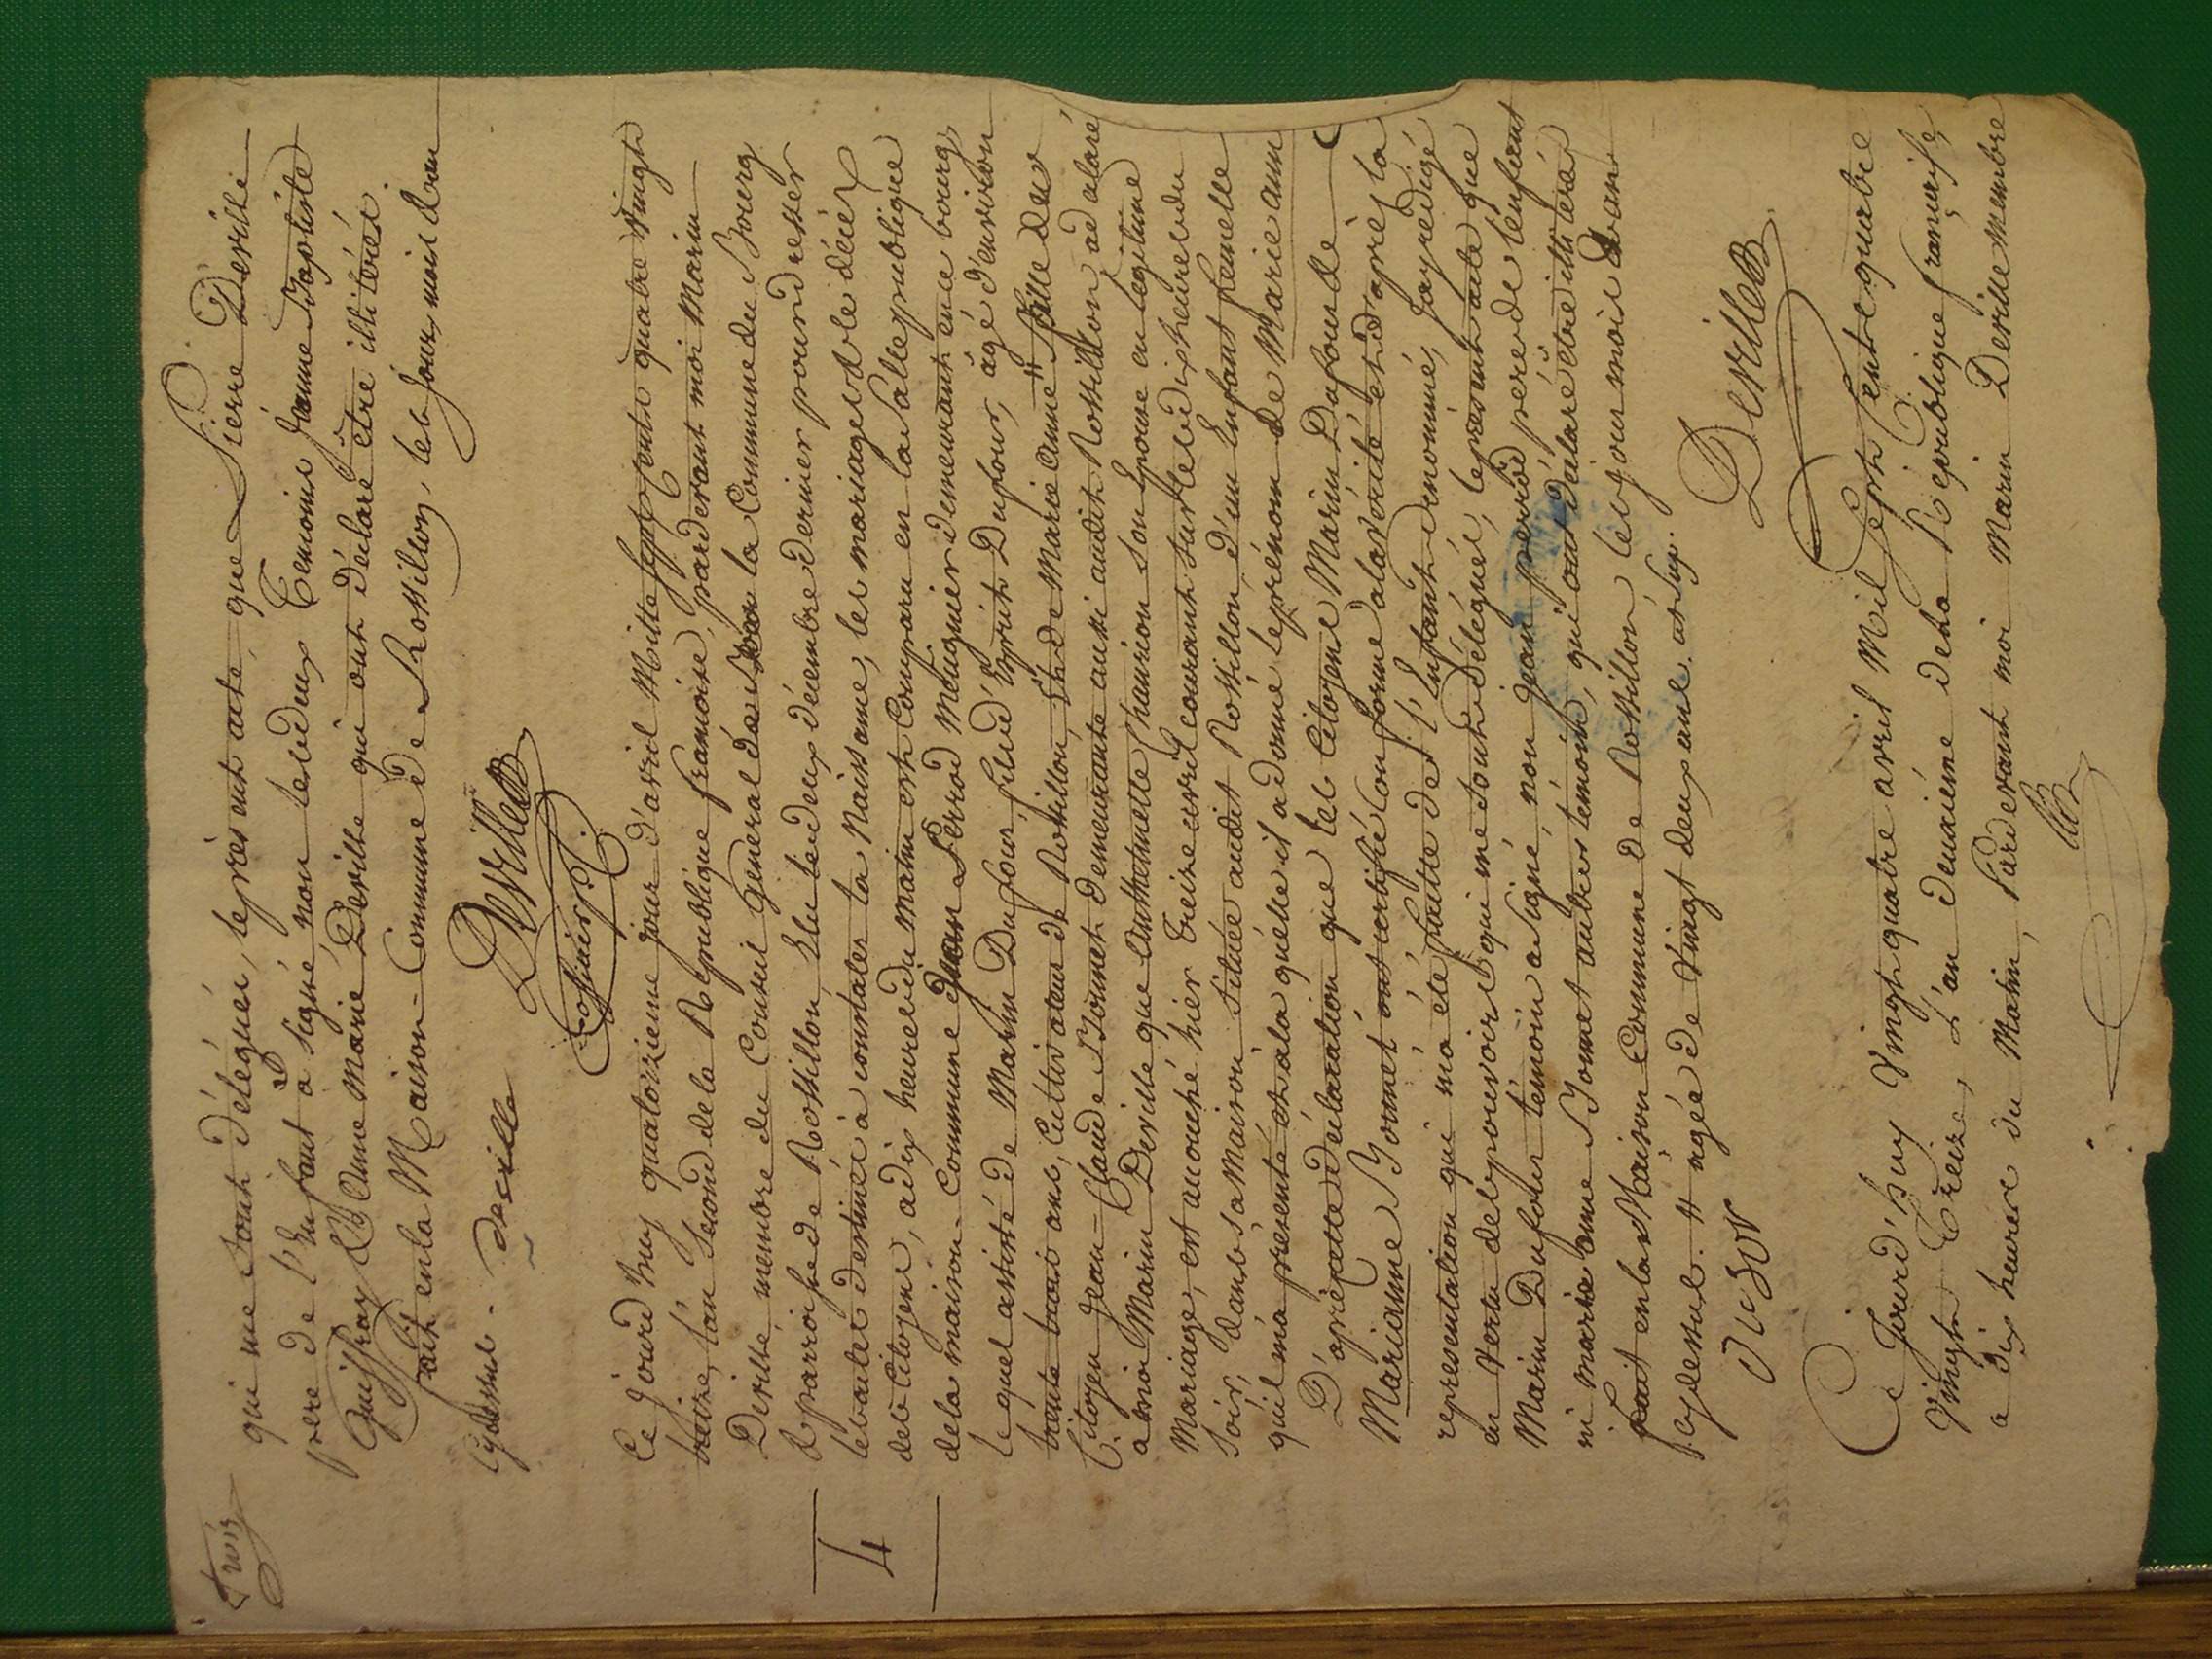 trois
qui me sont délégués, le présent acte, que Pierre Deville
pere de l'Enfant a signé, non les deux Temoins Jeanne Baptiste
Guiffray & Anne Marie Deville qui ont déclaré être illitérés
fait en la Maison-Commune de Rossillon, les jour, mois & an
cydessus. deville
Deville
officier p.
Ce jourd'huy quatorzieme jour d'avril Mille sept cents quatre vingts
treize, l'an second de la République françoise, parderant moi Marin
Deville, membre du Conseil général de la Commune du Bourg
& parroisse de Rossillon, Elu le deux décembre dernier pour dresser
les actes destinés à constater la Naissance, les mariages & le décès
des Citoyens, a dix heures du matin est Comparu en la salle publique
de la maison-Commune Jean Perrod Meûgnier demeurant en ce bourg
lequel assisté de Marin Dufour, fils d'Esprit Dufour, âgé d'environ
trente trois ans, Cultivateur de Rossillon, & de Marie Anne # fille du
Citoyen Jean-Claude Bonnet demeurante aussi audit Rossillon, a déclaré
a moi Marin Deville que Anthelmette Chanrion son Epouse en légitime
Mariage, est accouché hier treize avril courant sur les dix heures du
soir, dans sa Maison située audit Rossillon, d'un Enfant femelle
qu'il m'a présenté & à la quelle il a donné le prénom de Marie ann
D'après cette déclaration que les Citoyens Marin Dufour &
Marianne Bonnet ont certifié conforme a la vérité & d'après la
representation qui m'a été faitte de l'Enfant denommé, J'ay redigé
en vertu des pouvoirs qui me sont délégués, le présent acte que
Marin Dufour témoin a signé, non jean perrod pere de l'enfant
ni marie anne Bonnet autres témoins, qui ont déclaré être illitérés
fait en la Maison Commune de Rossillon les jour mois & an
cydessus. # agée de vingt deux ans. ar. sup.
Deville
4
Ce Jourd'huy vingt quatre avril Mil Sept Cent quatre
Vingts Treize, L'an deuxième de la République française,
a dix heures du Matin, Pardevant moi Marin Deville Membre